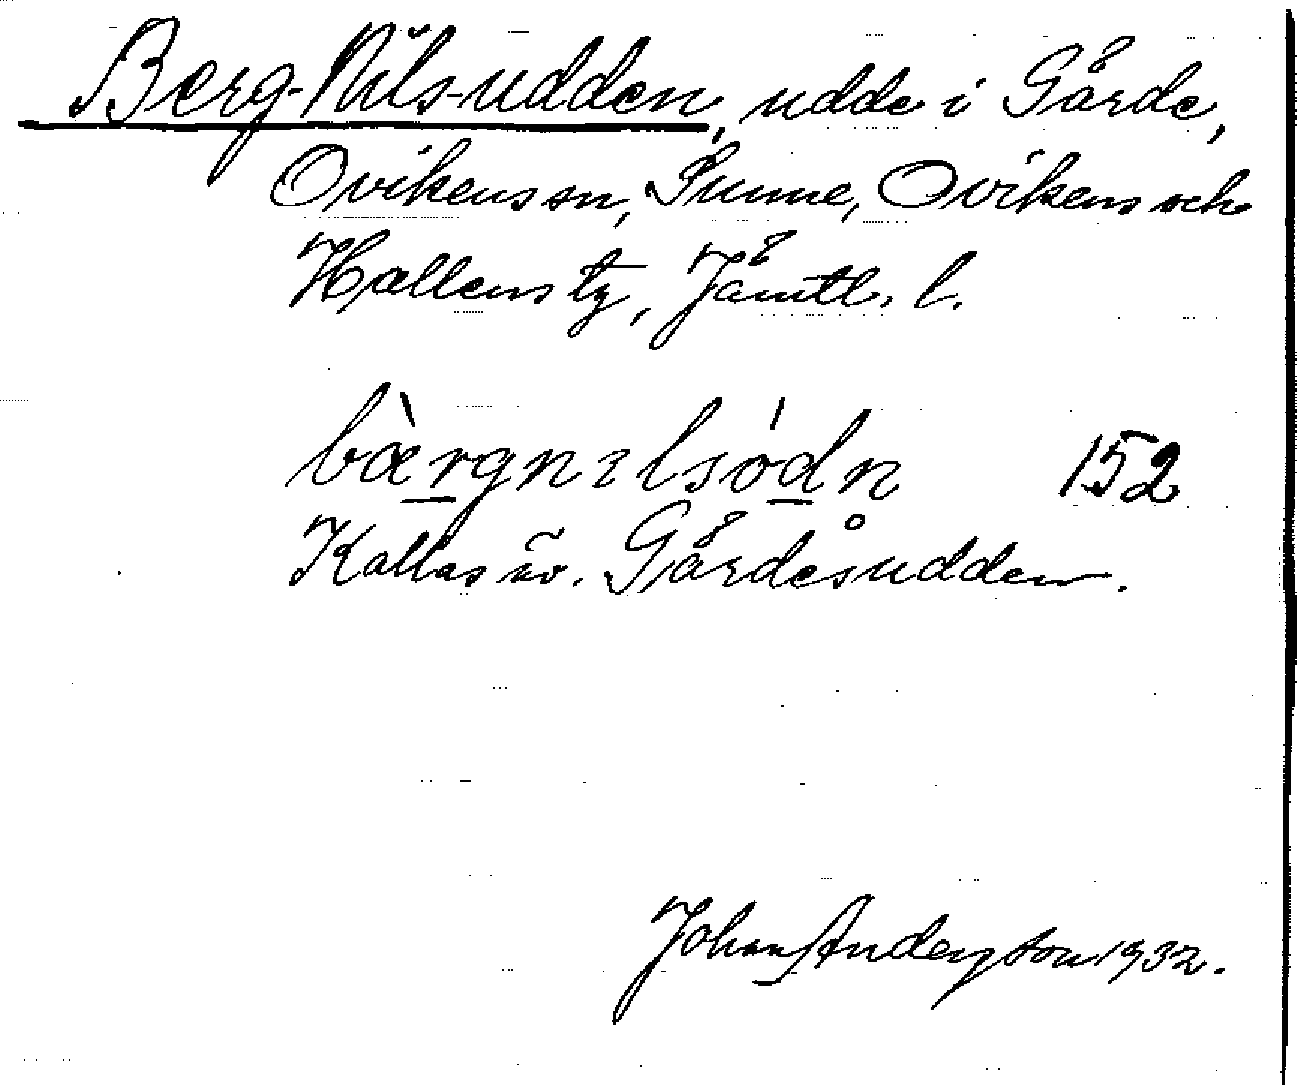 Berg-Nils-udden, udde i Gårde,
Ovikens sn, Sunne, Ovikens och
Hallens tg, Jämtl. l.
bærgnɪlsödn 152
Kallas äv. Gårdesudden.
Johan Anderson 1932.